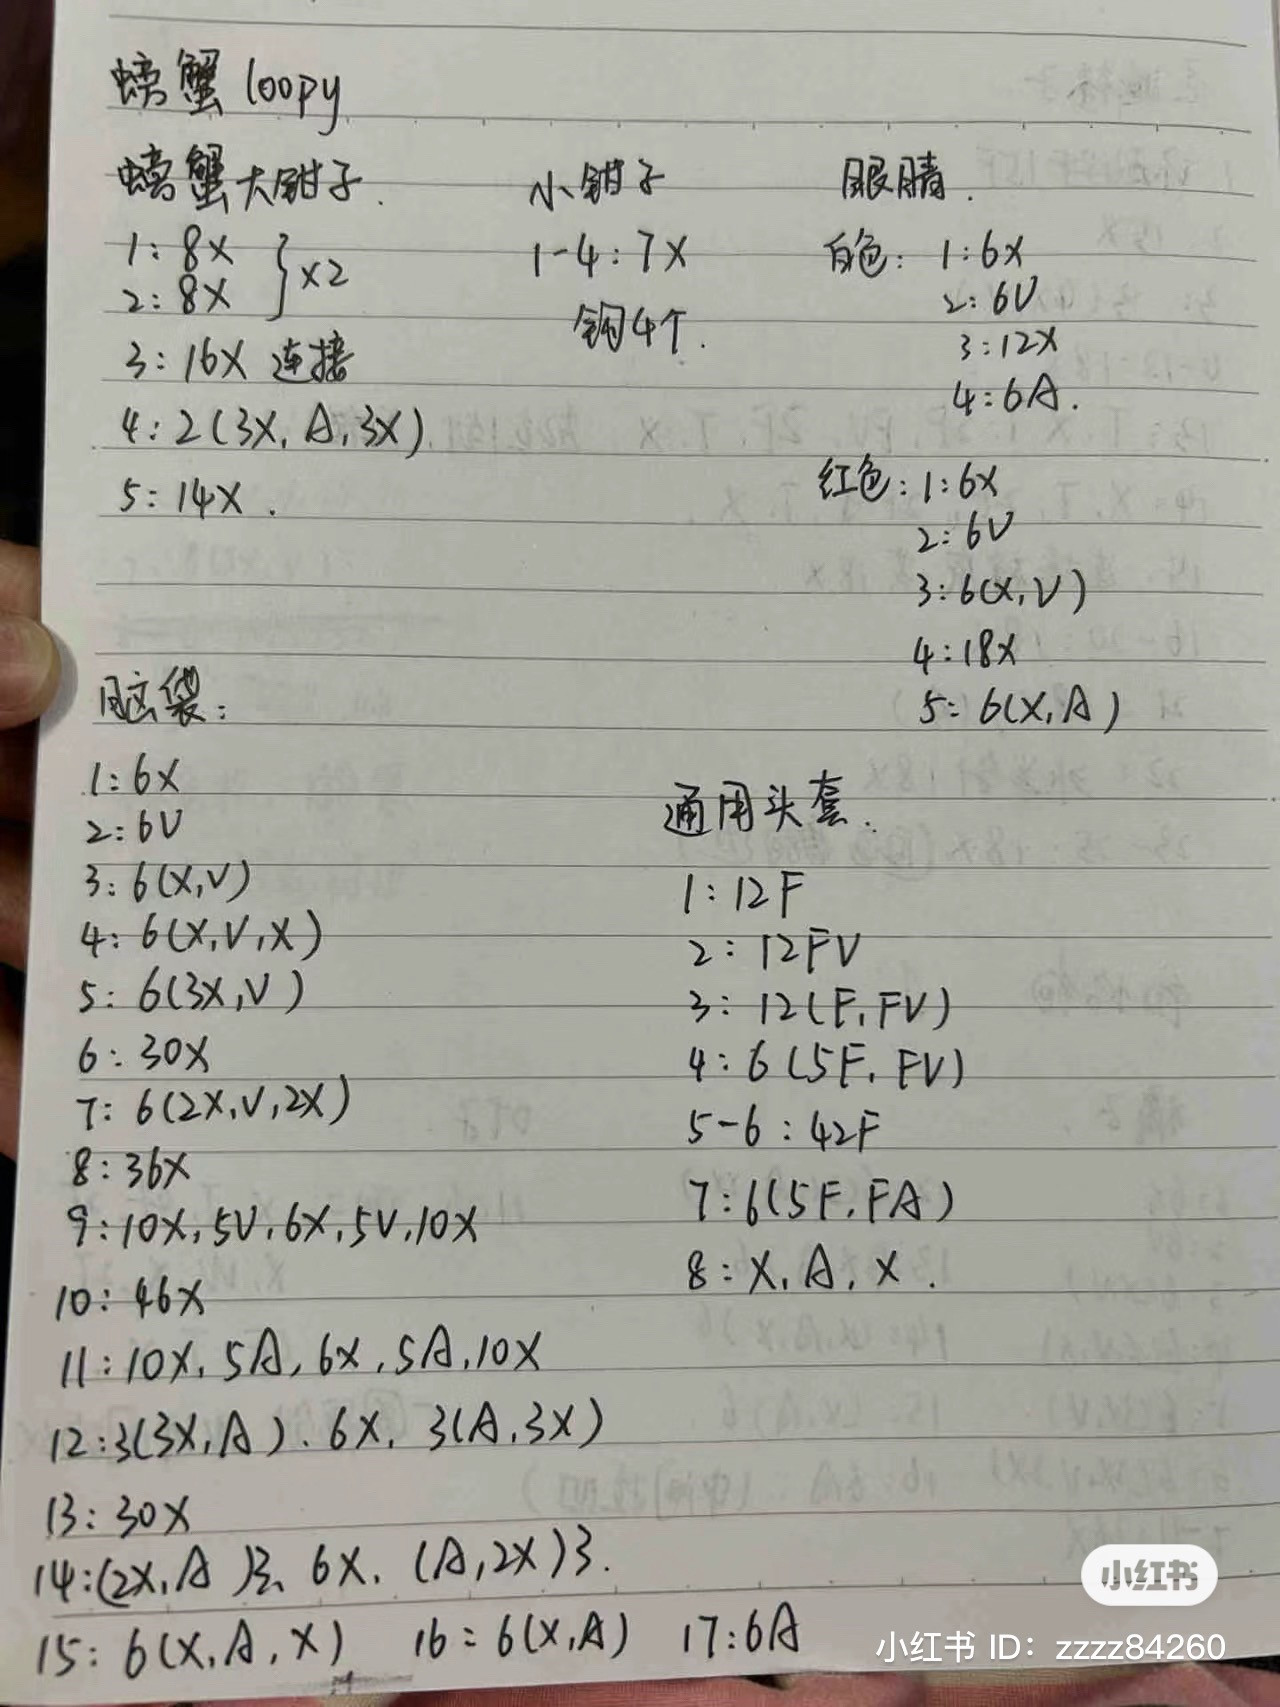 螃蟹 loopy
螃蟹大钳子.
1: 8X
2: 8X } x2
3: 16X 连接
4: 2(3X, A, 3X)
5: 14X.
小钳子
1-4: 7X
钩4个.
眼睛.
白色: 1: 6X
2: 6V
3: 12X
4: 6A.
红色: 1: 6X
2: 6V
3: 6(X, V)
4: 18X
5: 6(X, A)
脑袋:
1: 6X
2: 6V
3: 6(X, V)
4: 6(X, V, X)
5: 6(3X, V)
6: 30X
7: 6(2X, V, 2X)
8: 36X
9: 10X, 5V, 6X, 5V, 10X
10: 46X
11: 10X, 5A, 6X, 5A, 10X
12: 3(3X, A), 6X, 3(A, 3X)
13: 30X
14: (2X, A)3, 6X, (A, 2X)3.
15: 6(X, A, X) 16: 6(X, A) 17: 6A
通用头套.
1: 12F
2: 12FV
3: 12(F, FV)
4: 6(5F, FV)
5-6: 42F
7: 6(5F, FA)
8: X, A, X.
小红书
小红书 ID: zzzz84260